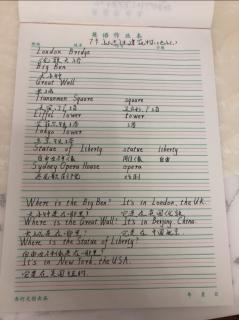 英语作业本
London Bridge
Big Ben
大本钟
Great Wall
长城
Tiananmen Square square
Eiffel Tower tower
Tokyo Tower
Statue of Liberty statue liberty
自由女神像
Sydney Opera House opera
Where is the Big Ben? It's in London, the UK.
大本钟在哪里? 它在英国伦敦.
Where is the Great Wall? It's in Beijing, China.
长城在哪里? 它在中国北京.
Where is the Statue of Liberty?
It's in New York, the USA.
它在美国纽约.
年 月 日